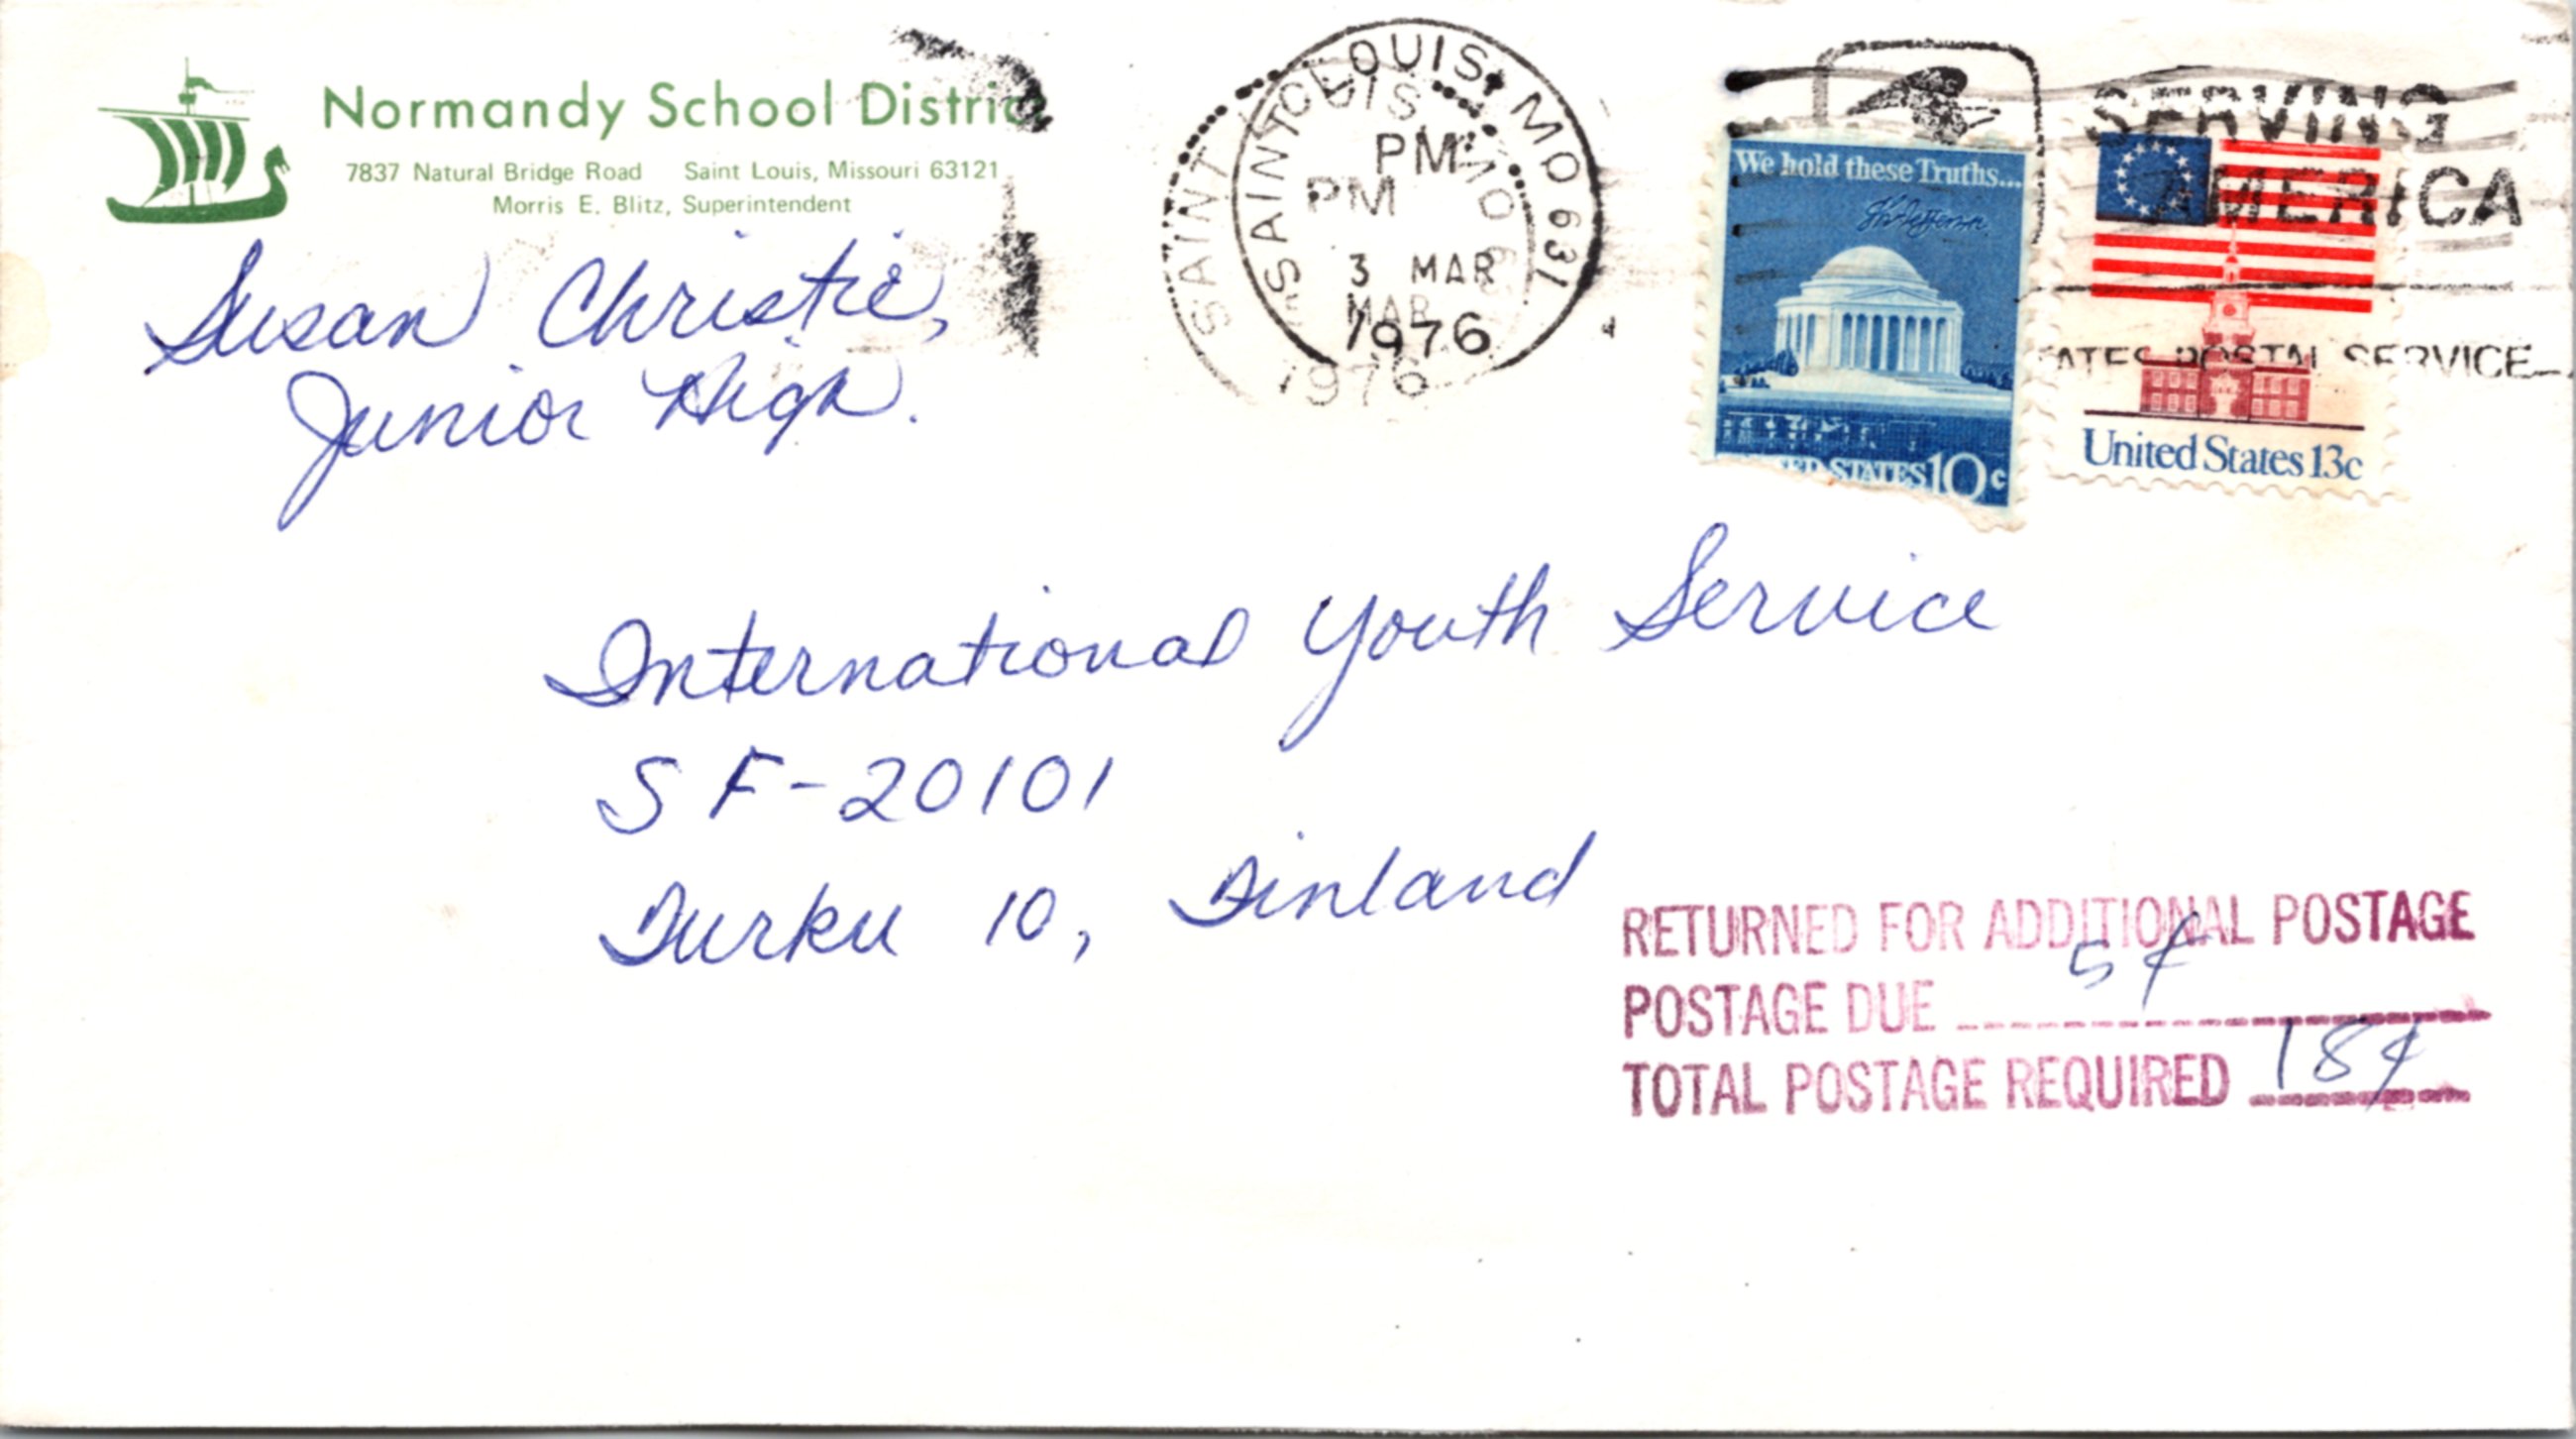 Normandy School District
7837 Natural Bridge Road Saint Louis, Missouri 63121
Morris E. Blitz, Superintendent
Susan Christie,
Junior High.
SAINT LOUIS, MO 631
PM
3 MAR
1976
SAINT LOUIS MO
PM
MAR
1976
SERVING
AMERICA
POSTAL SERVICE
We hold these Truths...
Th Jefferson
STATES 10c
United States 13c
International Youth Service
SF-20101
Turku 10, Finland
RETURNED FOR ADDITIONAL POSTAGE
POSTAGE DUE 5¢
TOTAL POSTAGE REQUIRED 18¢